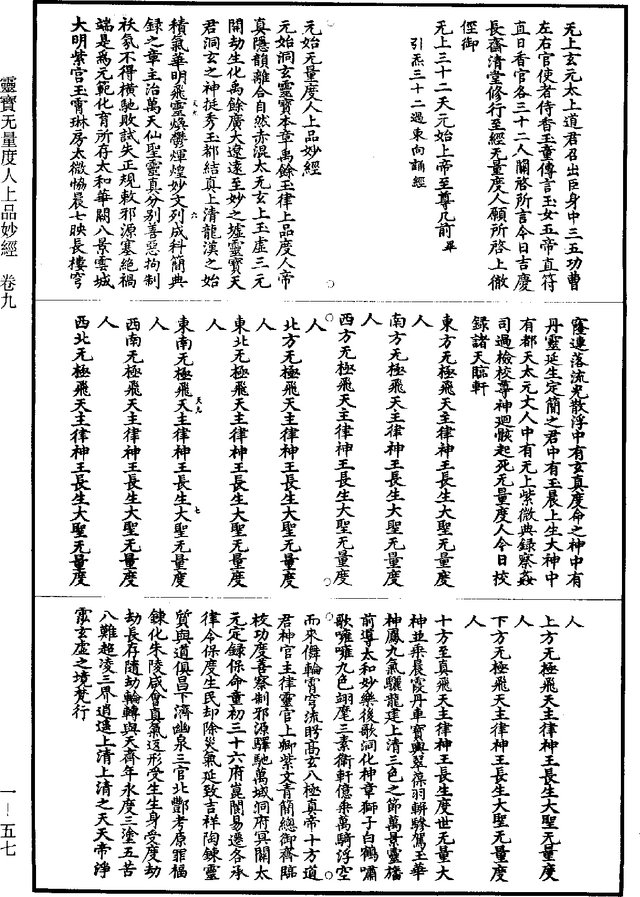 无上玄元太上道君召出臣身中三五功曹
左右官使者侍香玉童傳言玉女五帝直符
直日香官各三十二人關啓所言今日吉慶
長齋清堂修行至經无量度人願所啓上徹
徑御
无上三十二天元始上帝至尊几前畢
引炁三十二過東向誦經
元始无量度人上品妙經
元始洞玄靈寶本章禹餘玉律上品度人帝
真隱韻離合自然赤混太无元上玉虛三元
開劫生化禹餘廣大遼遠至妙之墟靈寶天
君洞玄之神挺秀玉都結真上清龍漢之始
積氣華明飛靈煥鬱煇煌妙文列成科簡典
録之章主治萬天仙聖靈真分别善惡拘制
祅氛不得橫馳敗試失正規敕邪源塞絶禍
端是爲元範化育所存太和華闕八景雲城
大明紫宫玉霄琳房太微恊晨七映長樓穹
窿連落流光散浮中有玄真度命之神中有
丹靈延生定簡之君中有玉晨上生大神中
有都天太元丈人中有无上紫微典録察姦
司過檢校尊神迴骸起死无量度人今日校
録諸天臨軒
東方无極飛天主律神王長生大聖无量度
人
南方无極飛天主律神王長生大聖无量度
人
西方无極飛天主律神王長生大聖无量度
人
北方无極飛天主律神王長生大聖无量度
人
東北无極飛天主律神王長生大聖无量度
人
東南无極飛天主律神王長生大聖无量度
人
西南无極飛天主律神王長生大聖无量度
人
西北无極飛天主律神王長生大聖无量度
人
上方无極飛天主律神王長生大聖无量度
人
下方无極飛天主律神王長生大聖无量度
人
十方至真飛天主律神王長生度世无量大
神並乘晨霞丹車寶輿翠葆羽軿驂駕玉華
神鳳九氣驪龍建上清三色之節萬景靈旛
前導太和妙樂後歌洞化神章獅子白鶴嘯
歌嗈嗈九色翊麾三素衛軒億乘萬騎浮空
而來儛輪霄空流眄高玄八極真帝十方道
君神官主律靈官上卿紫文青簡總御齋臨
校功度善察制邪源驛馳萬城洞府冥關太
元定録保命童初三十六府崑閬易遷各承
律令保度生民却除災氣延致吉祥陶鍊靈
質與道俱昌下濟幽泉三官北酆考原罪福
鍊化朱陵咸會真氣返形受生生身受度劫
劫長存隨劫輪轉與天齊年永度三塗五苦
八難超凌三界逍遥上清上清之天天帝淨
霐玄虛之境梵行
靈寶无量度人上品妙經 卷九
一－五七